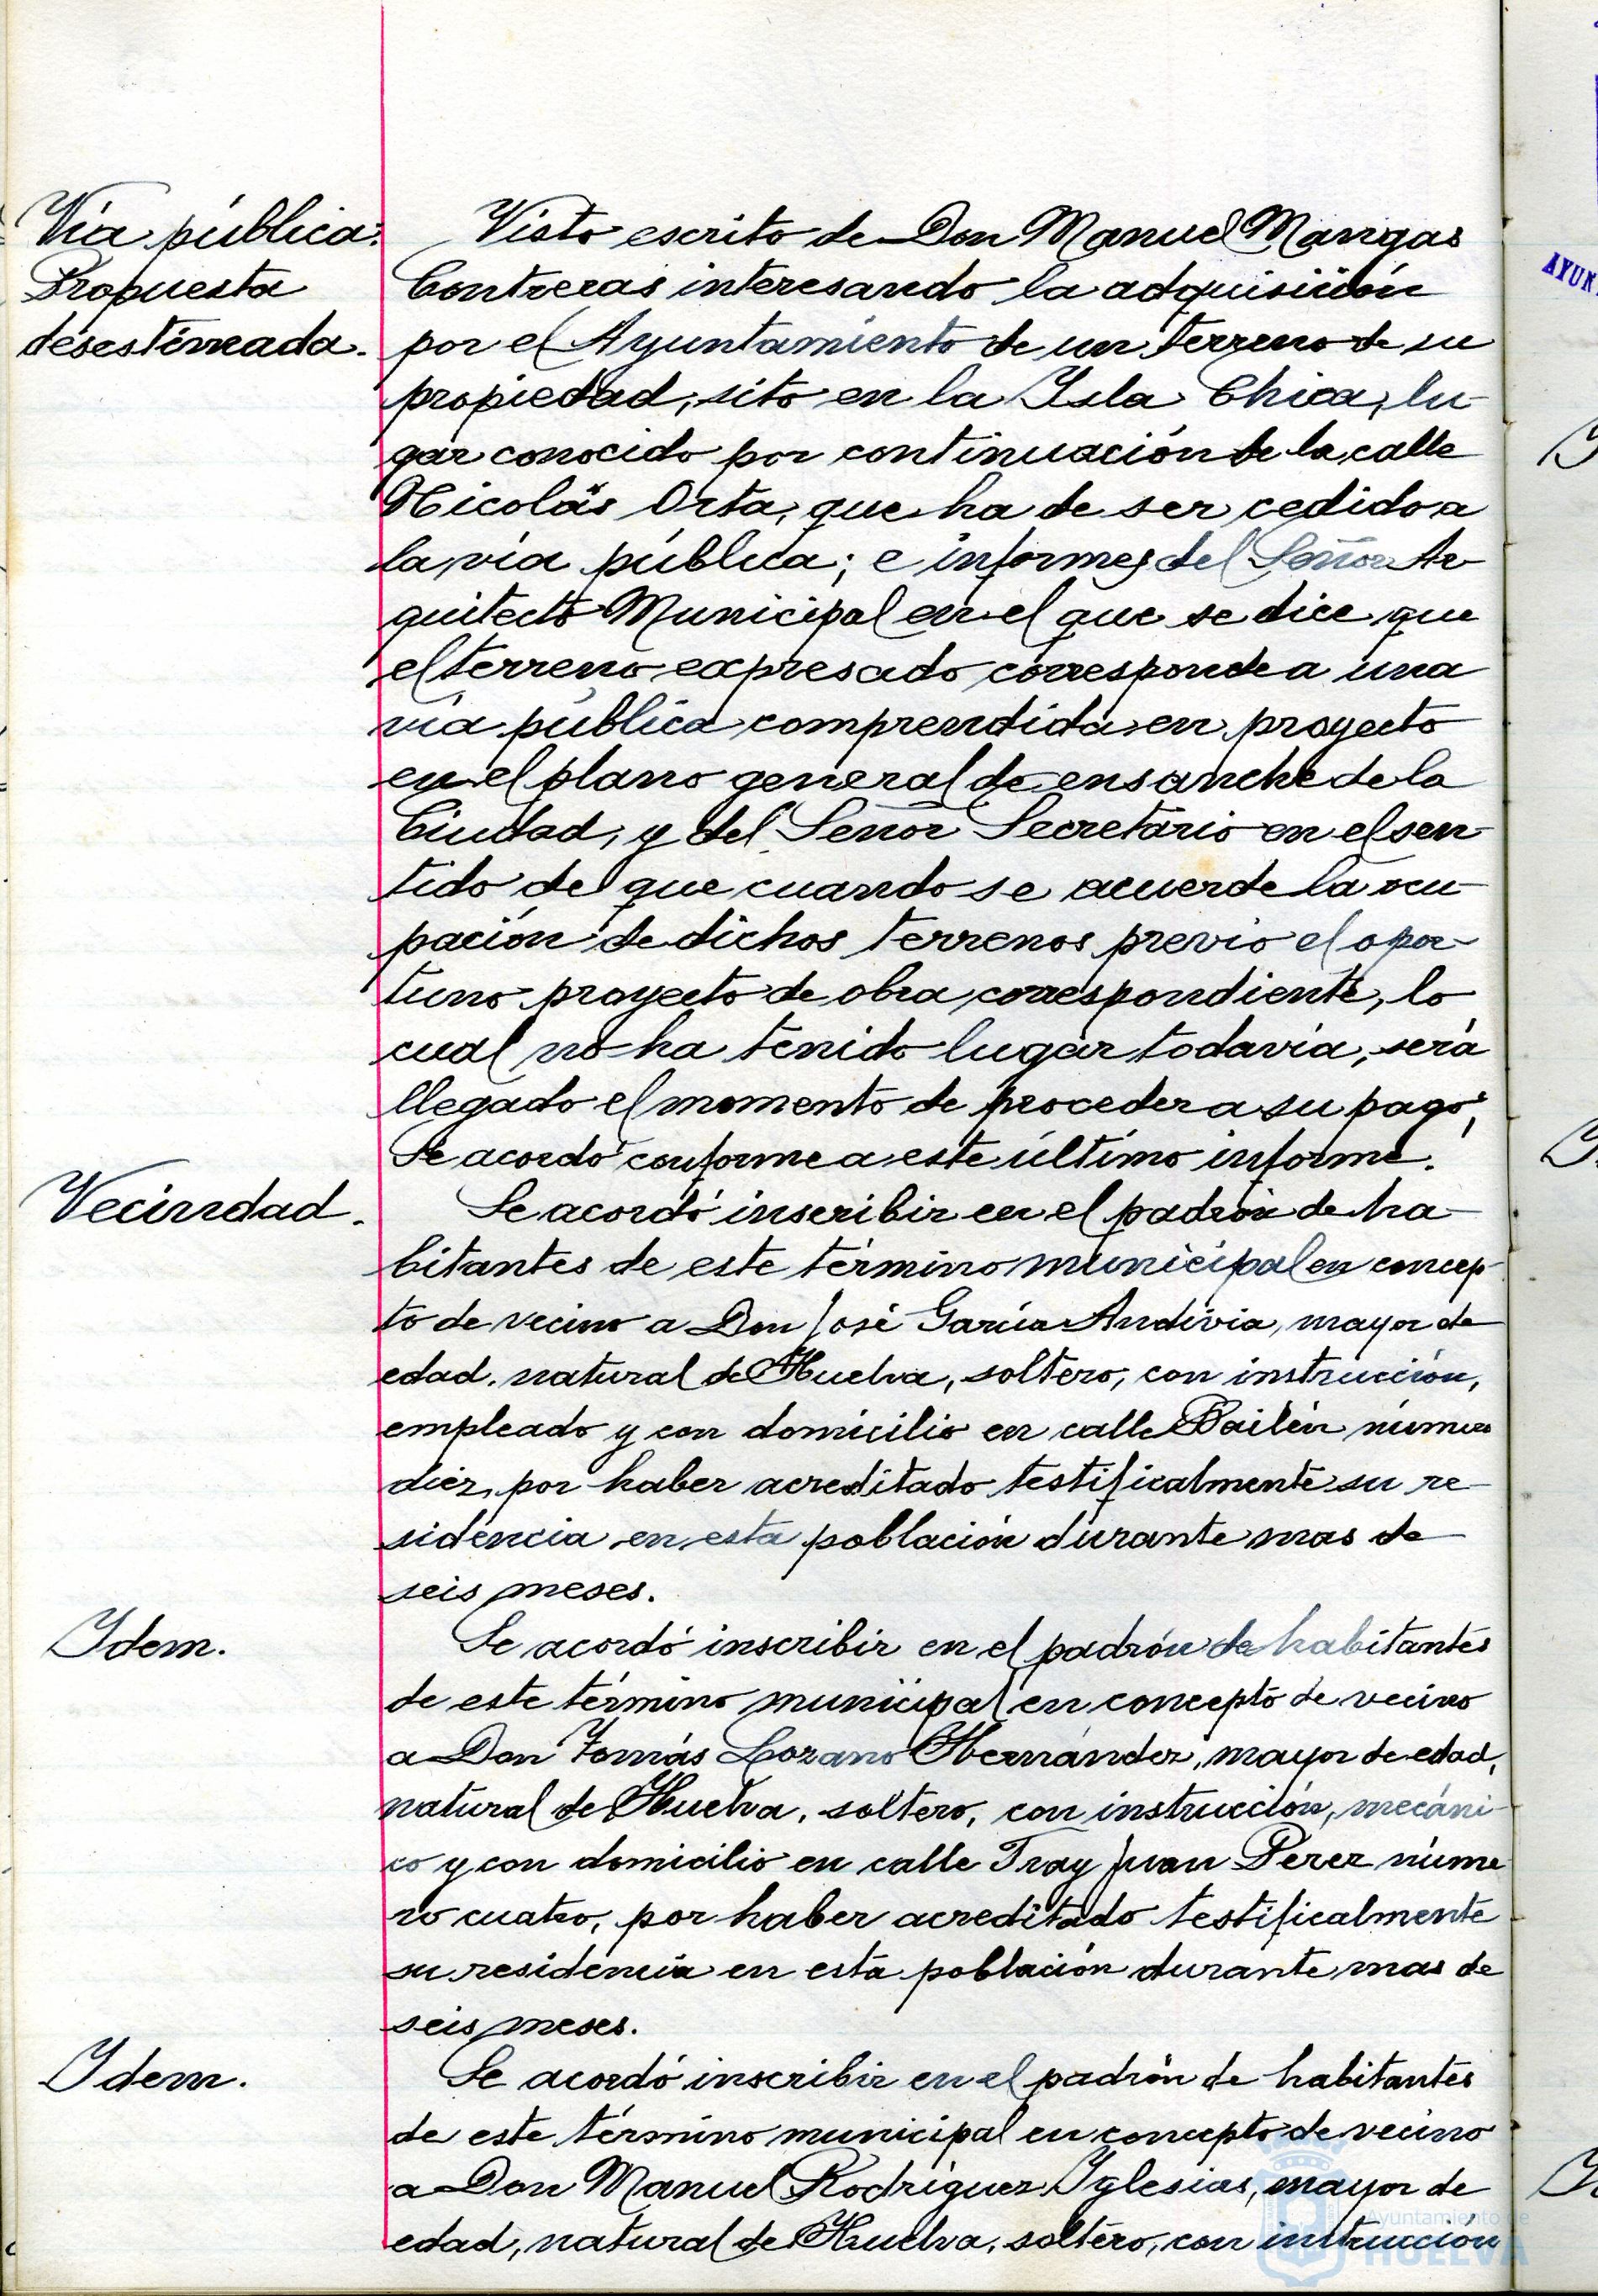 Vía pública.
Propuesta
desestimada.
Visto escrito de Don Manuel Mangas
Contreras interesando la adquisición
por el Ayuntamiento de un terreno de su
propiedad, sito en la Isla Chica, lu-
gar conocido por continuación de la calle
Nicolás Orta, que ha de ser cedido a
la via pública; e informes del Señor Ar-
quitecto Municipal en el que se dice que
el terreno expresado corresponde a una
vía pública comprendida en proyecto
en el plano general de ensanche de la
Ciudad, y del Señor Secretario en el sen-
tido de que cuando se acuerde la ocu-
pación de dichos terrenos previo el opor-
tuno proyecto de obra correspondiente, lo
cual no ha tenido lugar todavía, será
llegado el momento de proceder a su pago;
Se acordó conforme a este último informe.
Vecindad.
Se acordó inscribir en el padrón de ha-
bitantes de este término municipal en concep-
to de vecino a Don José García Andivia, mayor de
edad, natural de Huelva, soltero, con instrucción,
empleado y con domicilio en calle Bailén número
diez, por haber acreditado testificalmente su re-
sidencia en esta población durante mas de
seis meses.
Idem.
Se acordó inscribir en el padrón de habitantes
de este término municipal en concepto de vecino
a Don Tomás Lozano Hernández, mayor de edad,
natural de Huelva, soltero, con instrucción, mecáni-
co y con domicilio en calle Fray Juan Perez núme-
ro cuatro, por haber acreditado testificalmente
su residencia en esta población durante mas de
seis meses.
Idem.
Se acordó inscribir en el padrón de habitantes
de este término municipal en concepto de vecino
a Don Manuel Rodríguez Iglesias, mayor de
edad, natural de Huelva, soltero, con instrucción
Ayuntamiento de
HUELVA
AYUN